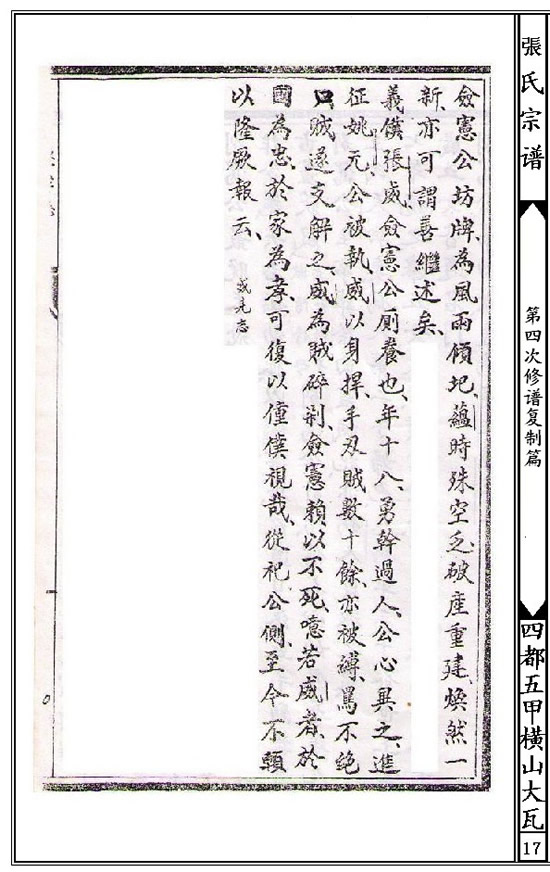 張氏宗谱
第四次修谱复制篇
四都五甲横山大瓦
17
僉憲公坊牌、為風雨傾圮、蘊時殊空乏、破產重建、煥然一
新、亦可謂善繼述矣、
義僕張威、僉憲公厮養也、年十八、勇幹過人、公心異之、進
征姚元、公被執、威以身捍、手刄賊數十餘、亦被縛、罵不绝
口、賊遂支解之、威為賊碎剐、僉憲賴以不死、噫若威者、於
國為忠、於家為孝、可復以僮僕視哉、從祀公側、至今不顇
以隆厥報云、
威先志